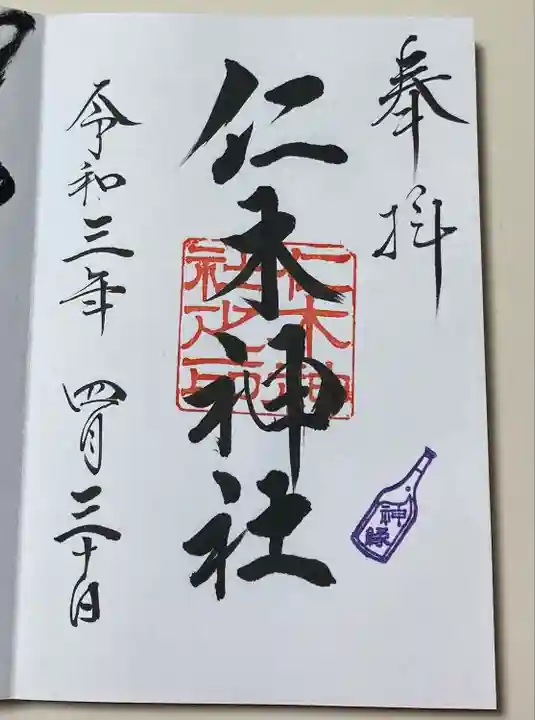 奉拝
仁木神社
仁木神
社之印
神縁
令和三年 四月三十日